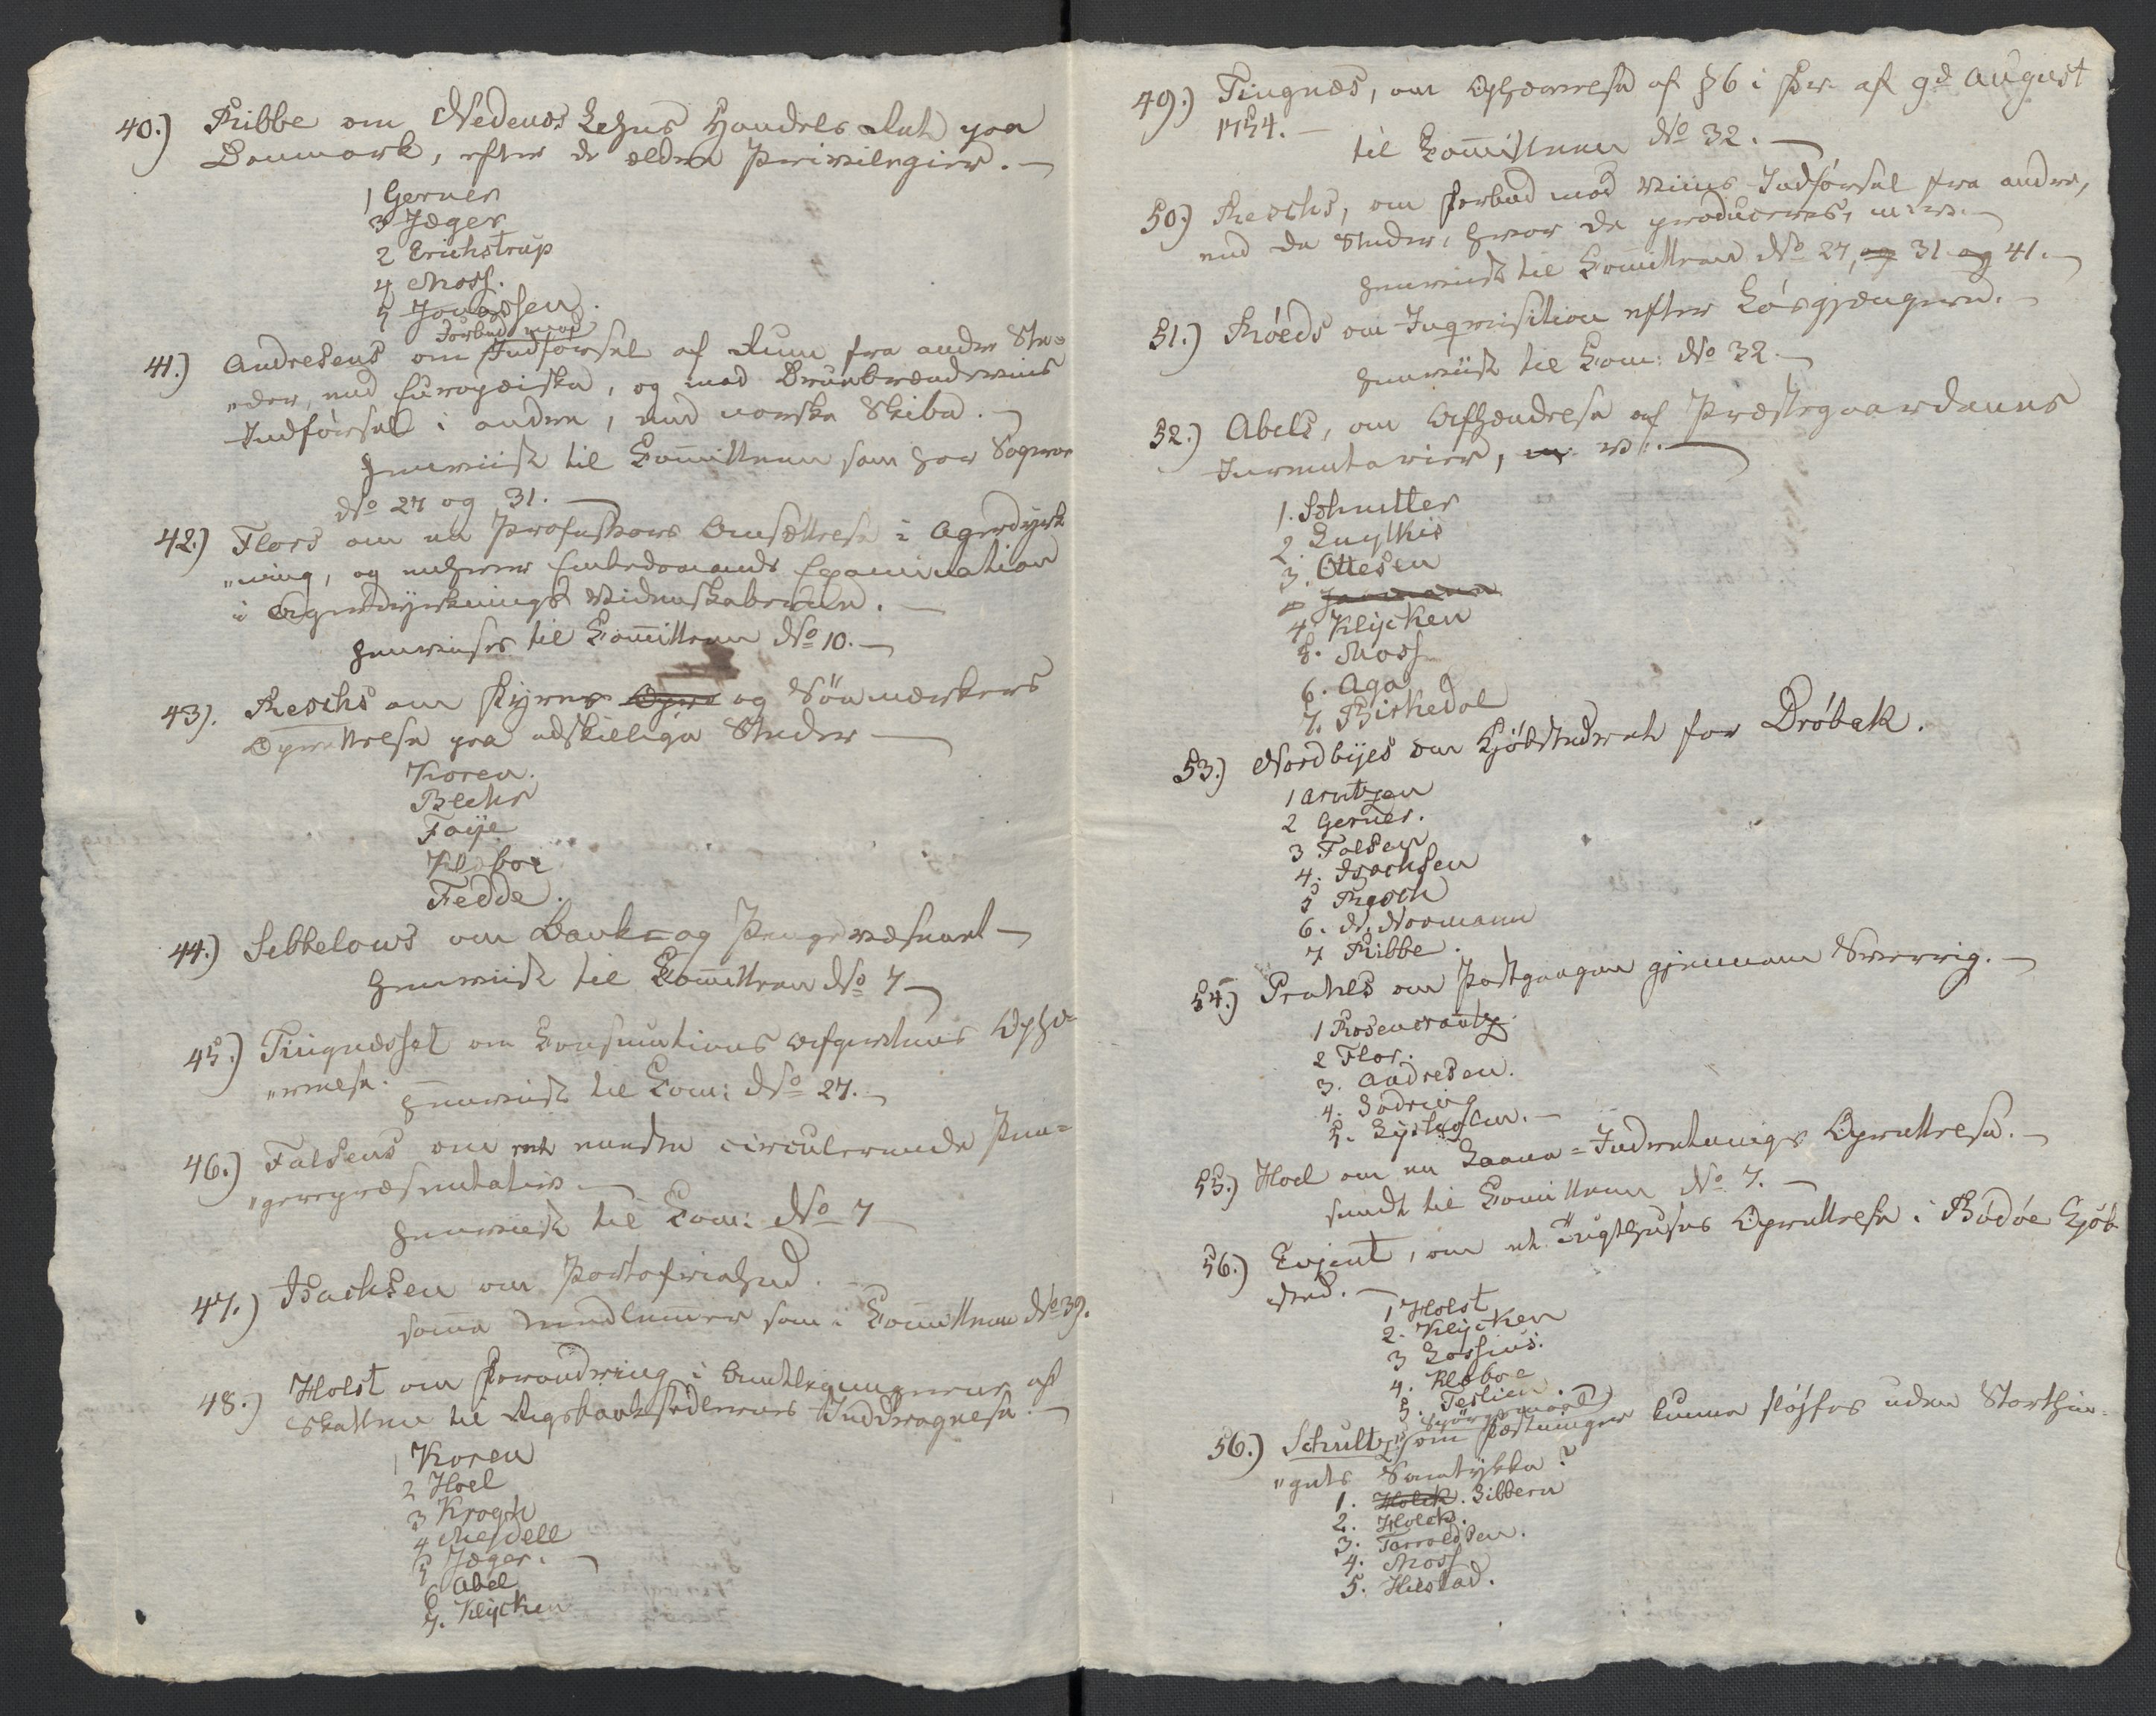 40.) Ribbe om Nedenes Lehns Handels Ret paa
Danmark, efter de ældre Privilegier. —
1 Gerner
3 Jæger
2 Erichstrup
4 Moss.
5 Jonassen.
Forbud mod
41.) Andresens om Indførsel af Rum fra andre Ste=
„der, end Europæiske, og mod Brændevins
Indførsel i andre, end norske Skibe. —
henviist til Committeen som har Sagerne
No 27 og 31. —
42.) Flors om en Professors Ansættelse i Agerdyrk
„ning, og enhver Embedsmands Examination
i Agerdyrknings Videnskaberne. —
henvises til Committeen No 10. —
43). Reschs om Fyrer og Sømærkers
Oprettelse paa adskillige Steder —
Koren.
Blehr
Faye
Kløboe
Fedde.
44.) Sebbelows om Bank= og Pengevæsenet —
henviist til Committeen No 7 —
45.) Tingnæsset om Consumtions Afgivtens Ophæ=
„velse. henviist til Com: No 27. —
46.) Falsens om ret nændte circulerende Pen=
„gerepræsentativ —
henviist til Com: No 7 —
47.) Isachsen om Portofriehed. —
samme Medlemmer som i Committeen No 39.
48.) Holst om Forandring i Anlægningerne af
Skatten til Rigsbanksedlernes Inddragelse. —
1 Koren
2 Hoel
3 Krogh
4 Mesdell
5 Jæger. —
6 Abel
7. Klycken
49.) Tingnæs, om Ophævelse af § 6 i For. af 9d August
1754. —
til Committeen No 32. —
50.) Reschs, om Forbud mod Viins Indførsel fra andre,
end de Steder, hvor de produceres, m. v. —
henviist til Committeen No 27, og 31 og 41. —
51.) Røeds om Inqvisition efter Løsgjængere. —
henviist til Com: No 32 —
52.) Abels, om Afhændelse af Præstegaardenes
Inventarier, m. v. —
1. Schmitter
2.
3. Ottesen
4. Klycken
5. Moss
6. Aga
7. Birkedal
53.) Nordbyes om Kjøbstedret for Drøbak.
1 Arntzen
2 Gerner.
3 Falsen
4. Isachsen
5 Resch
6. N. Normann
7 Ribbe.
54.) Prahls om Postgangen gjennem Sverrig. —
1 Rosencrantz.
2 Flor.
3. Andresen.
4. Södring
5. —
55.) Hoel om en Laane=Indretnings Oprettelse. —
sendt til Committeen No 7. —
56.) Evjent, om et Tugthuses Oprettelse i Bodøe Kjøb
sted. —
1 Holst
2. Klycken
3 Lossius.
4. Kløboe
5. Teslien.
Spørgsmaal
56.) Schultz, om Fæstninger kunne sløjfes uden Storthin=
„gets Samtykke?
1. Holck. Sibbern
2. Holck.
3. Tarraldsen.
4. Moss
5. Hiestad.